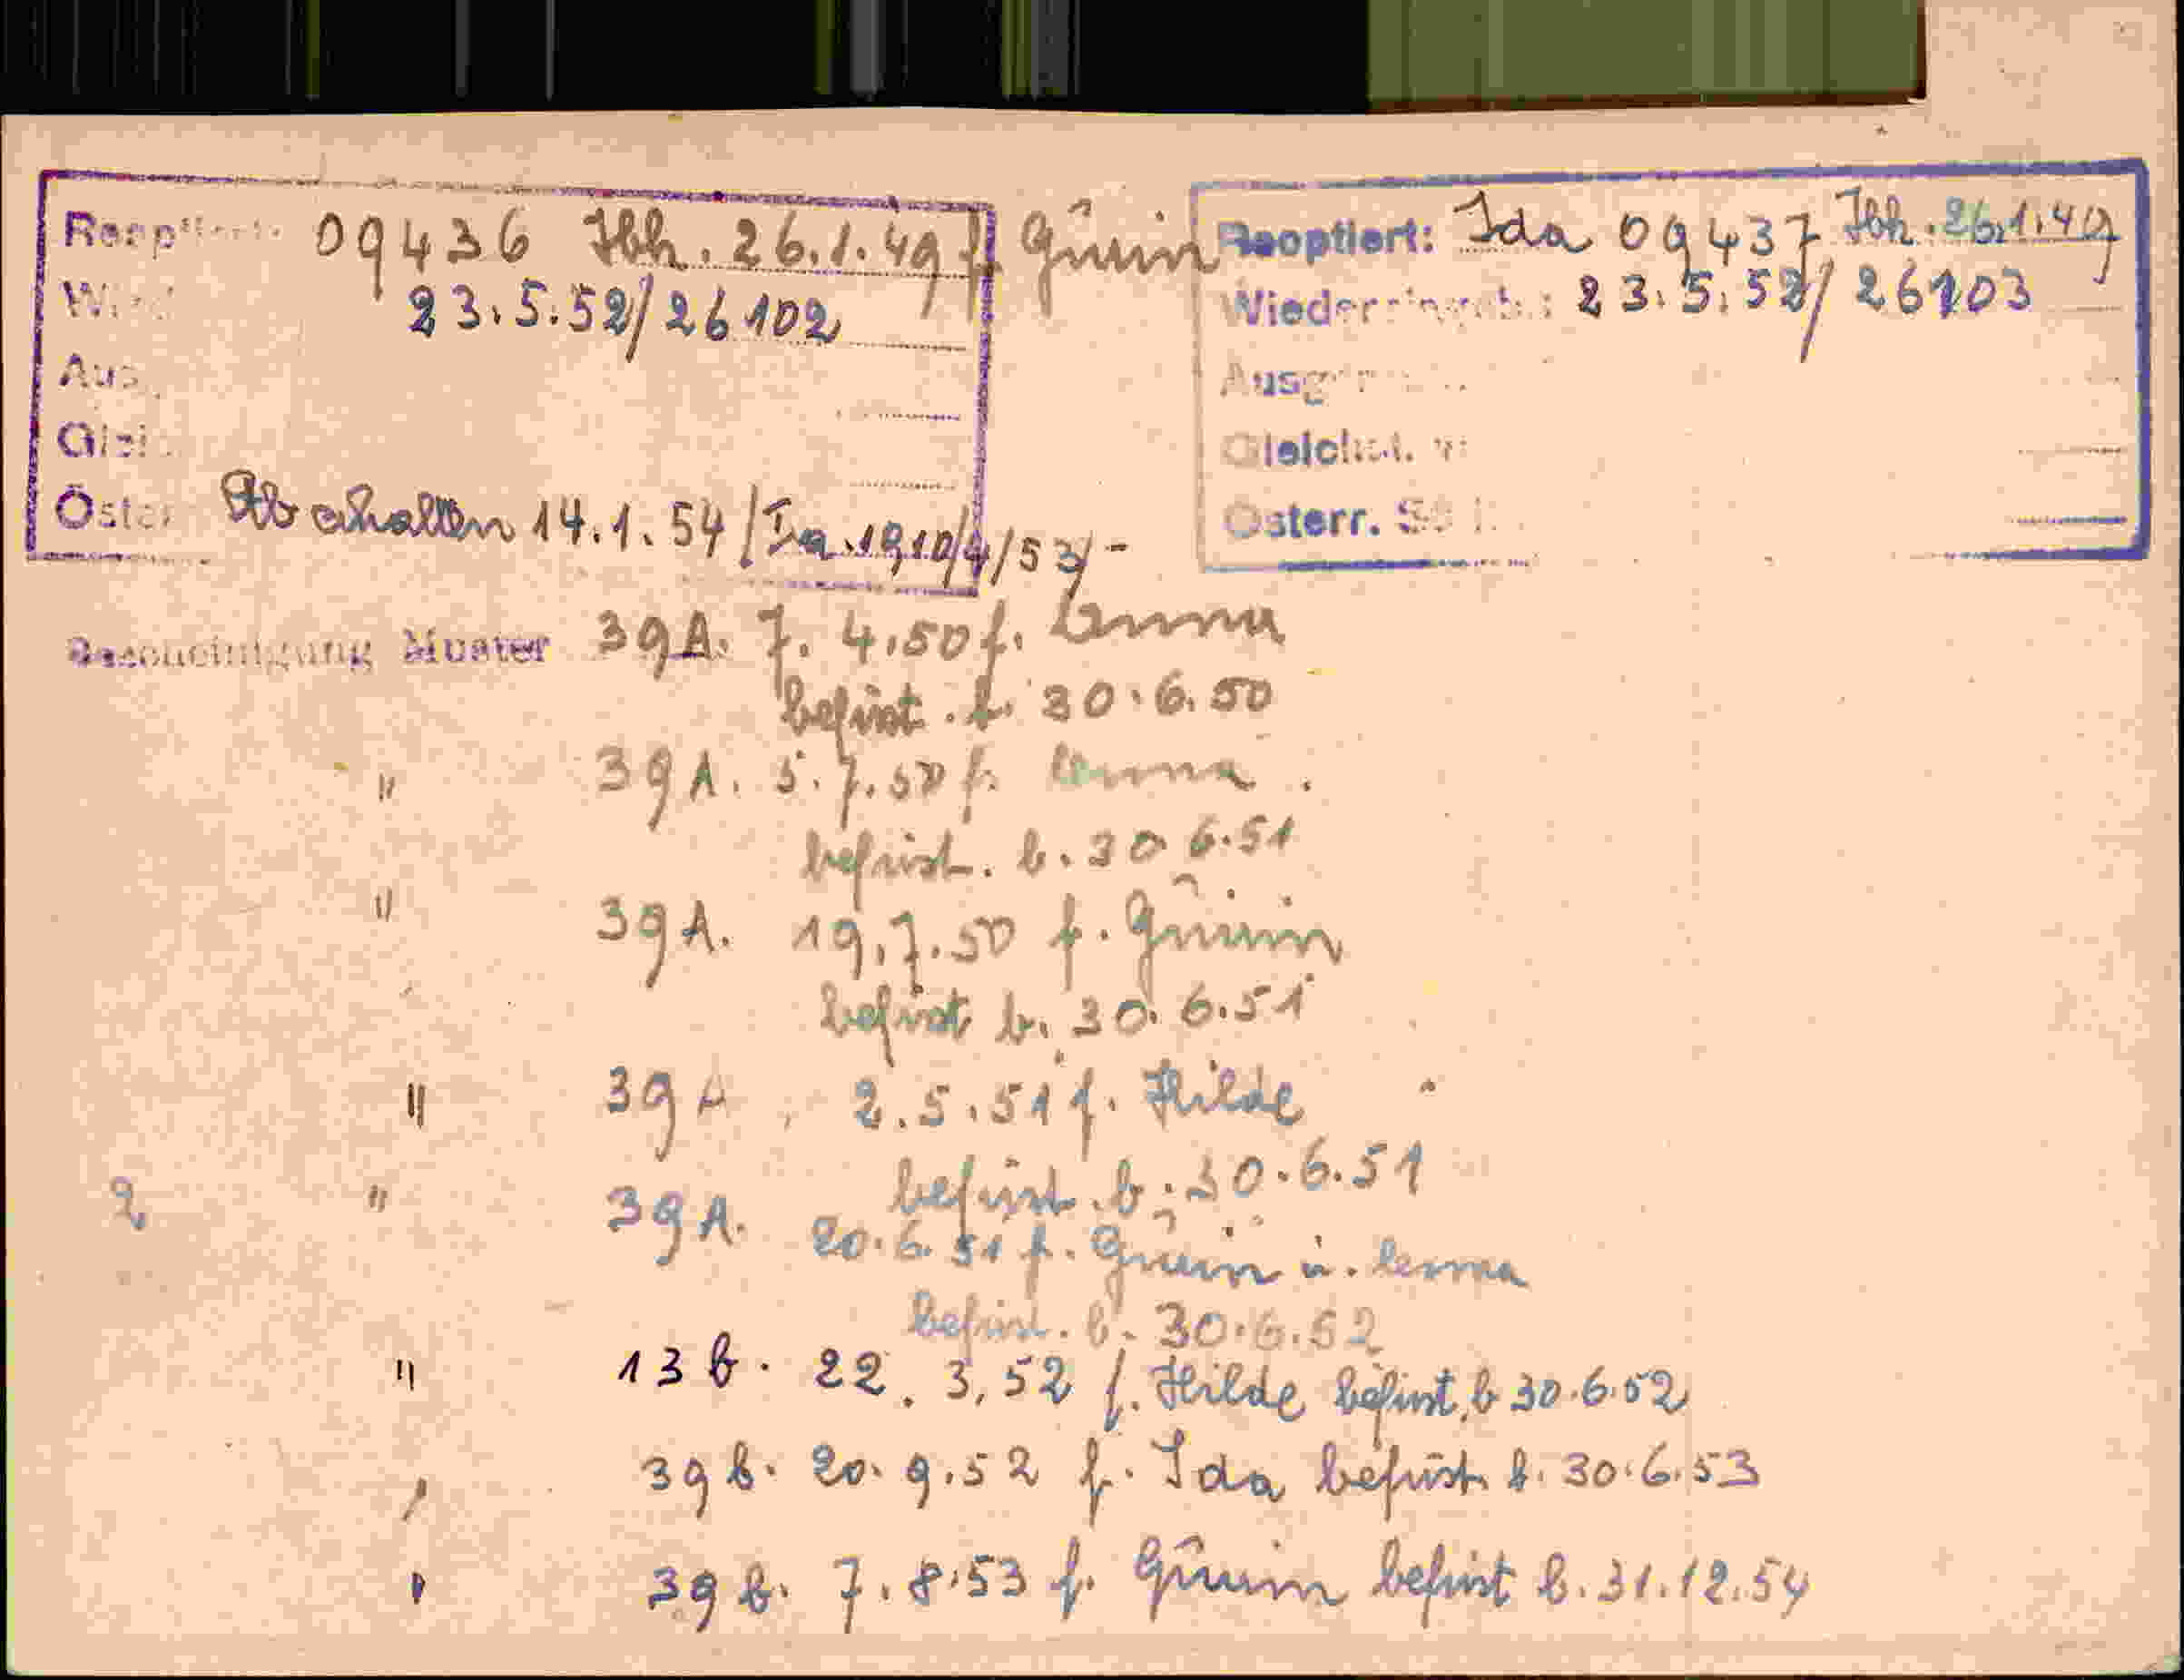 Reoptiert: 09436 Ibk. 26.1.49 f. Guerin
23.5.52/26102
Aus
Glei
Öster
Abschalten 14.1.54/Ia-1910/4/53/-
Reoptiert: Ida 09437 Ibk. 26.1.49
Wiedereingeb.: 23.5.52/26103
Ausge
Gleichst.
Österr. St
Bescheinigung Muster 39A. 7.4.50 f.
befrist. b. 30.6.50
" 39A. 5.7.50 f.
befrist. b. 30.6.51
" 39A. 19.7.50 f.
befrist b. 30.6.51
" 39A. 2.5.51 f. Hilde
befrist. b. 30.6.51
2 " 39A. 20.6.51 f. u.
befrist. b. 30.6.52
" 13b. 22.3.52 f. Hilde befrist. b 30.6.52
39b. 20.9.52 f. Ida befrist b. 30.6.53
39b. 7.8.53 f. befrist b. 31.12.54